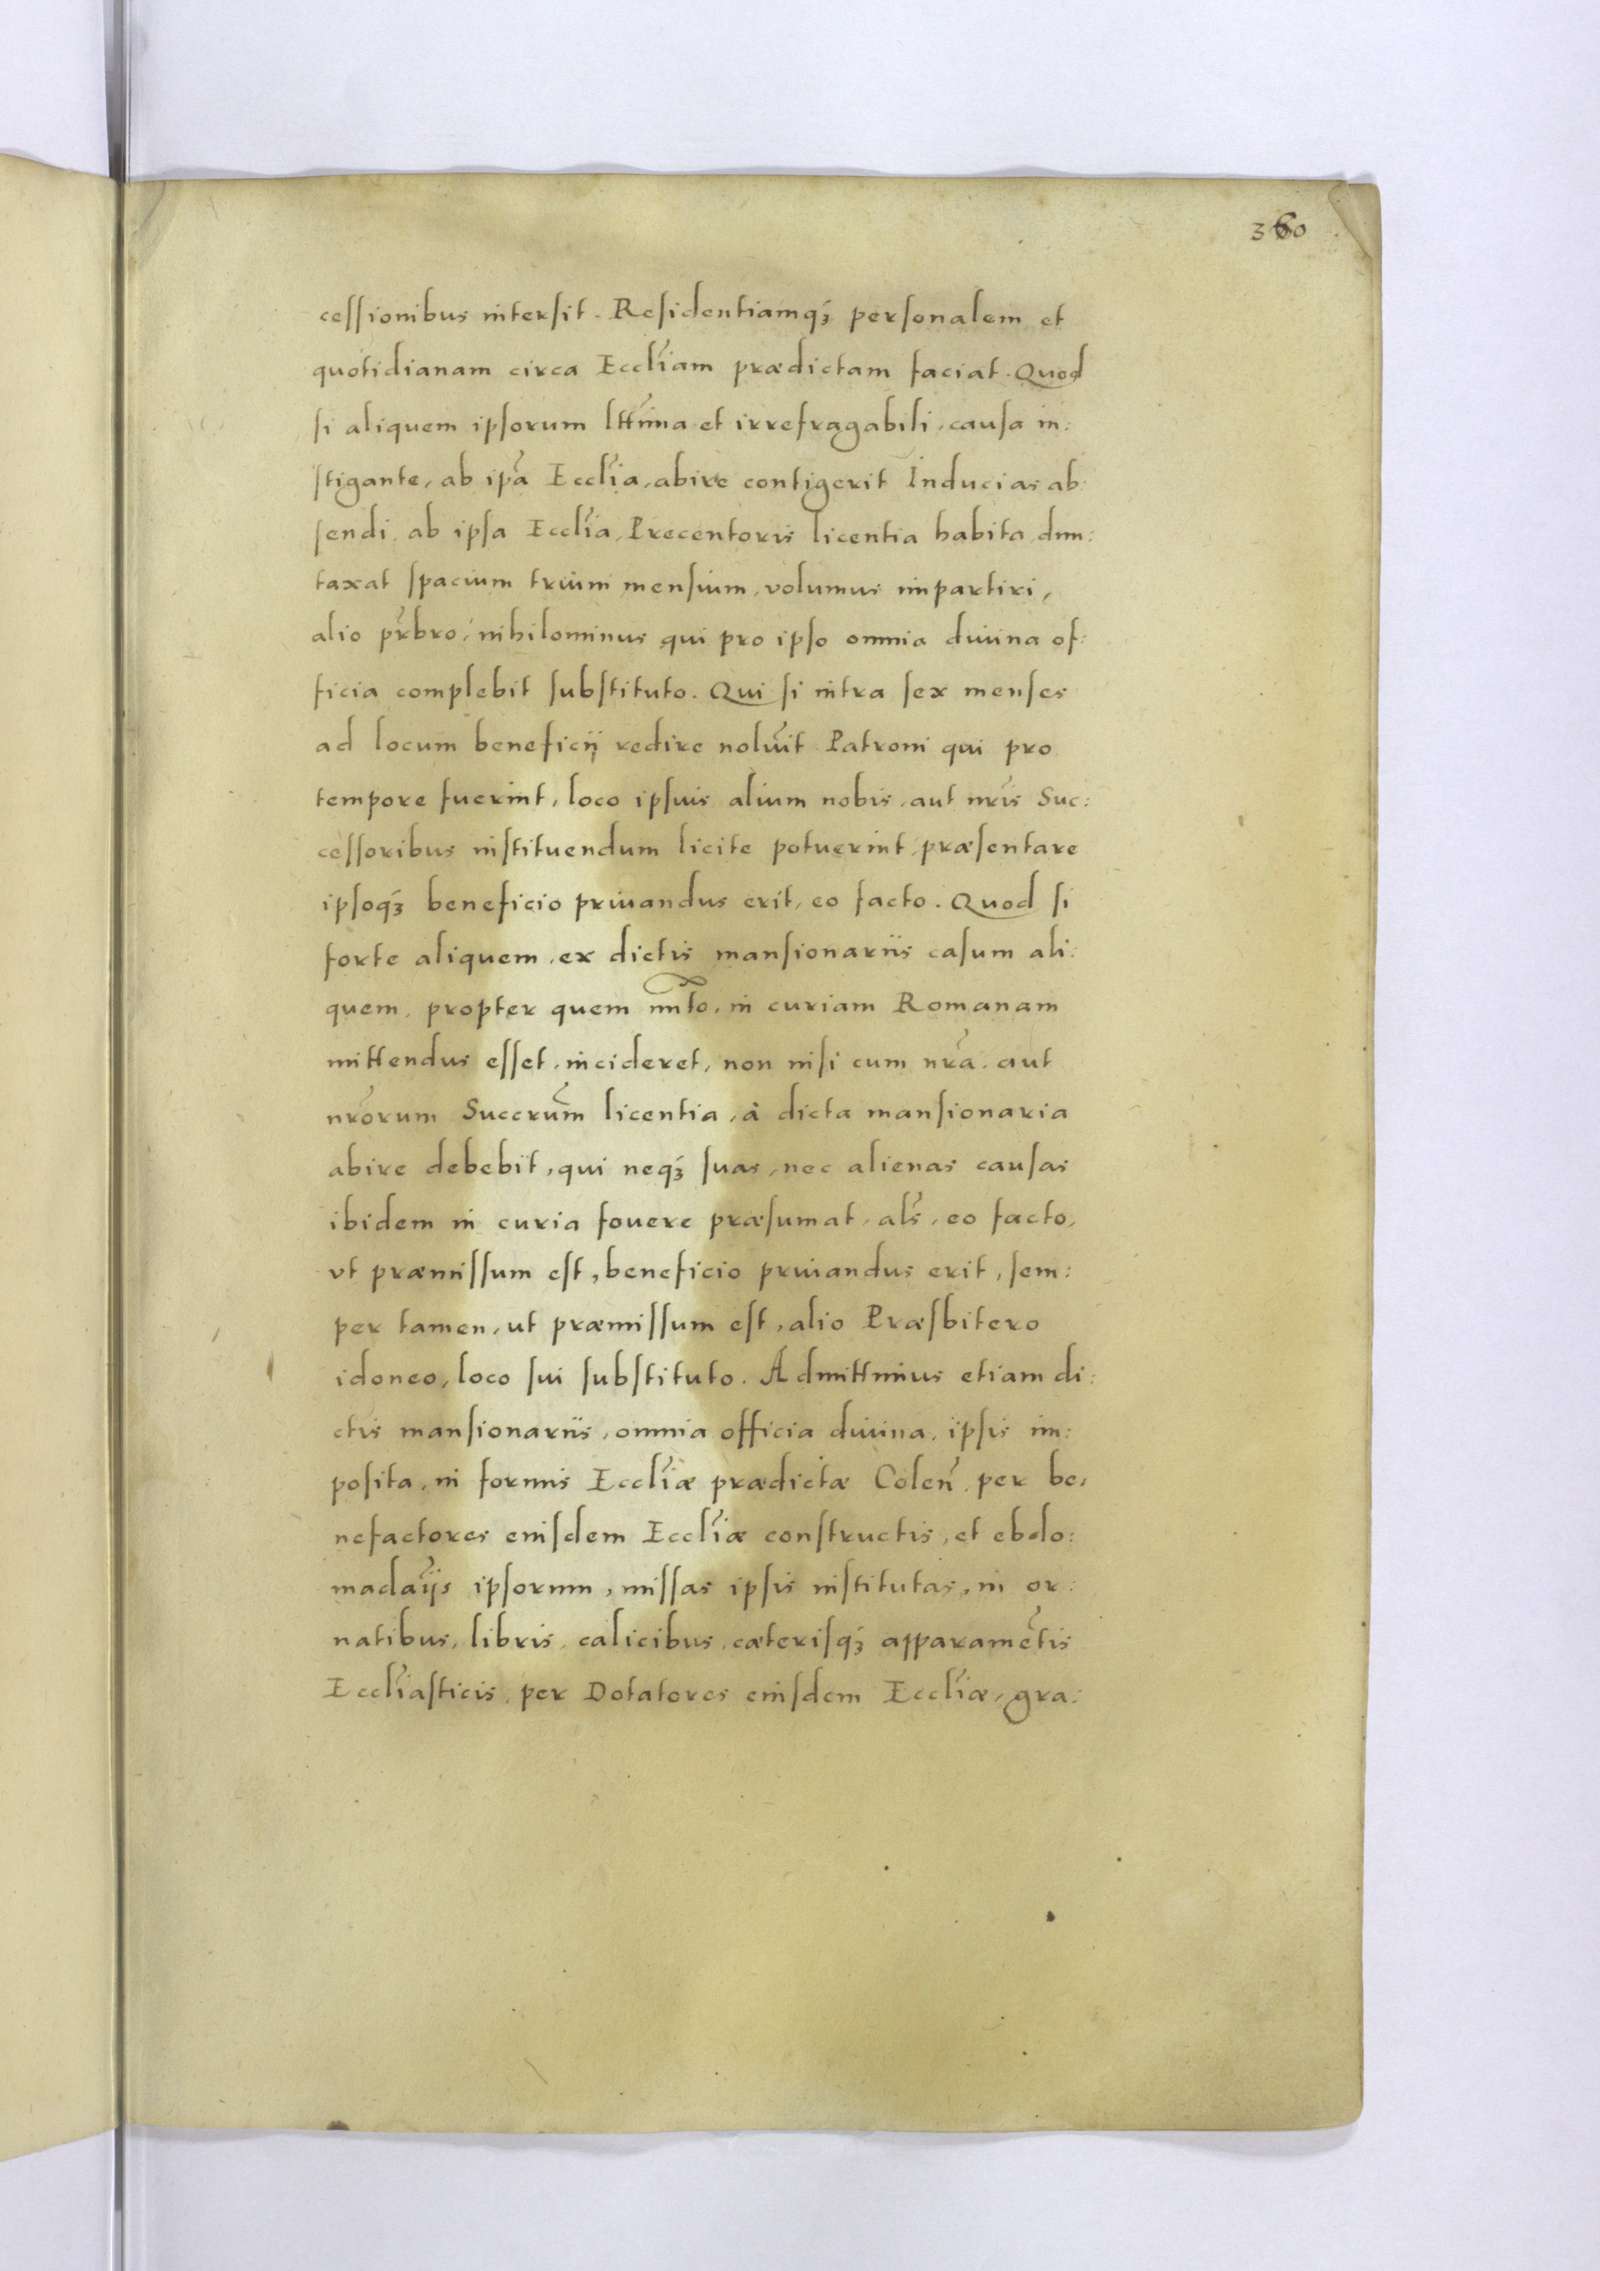 360
cessionibus intersit. Residentiamqꝫ personalem et
quotidianam circa Eccl̃iam prædictam faciat. Quod
si aliquem ipsorum ltt̃ima et irrefragabili, causa in:
stigante, ab ip̃a Eccl̃ia, abire contigerit Inducias ab:
sendi, ab ipsa Eccl̃ia, Precentoris licentia habita, dun:
taxat spacium trium mensium, volumus impartiri,
alio pr̃bro, nihilominus qui pro ipso omnia diuina of:
ficia complebit substituto. Qui si intra sex menses
ad locum beneficij redire nolu̾it Patroni qui pro
tempore fuerint, loco ipsius alium nobis, aut nr̃is Suc:
cessoribus instituendum licite potuerint, præsentare
ipsoqꝫ beneficio priuandus erit, eo facto. Quod si
forte aliquem, ex dictis mansionariis casum ali:
quem, propter quem in curiam Romanam
mittendus esset, incideret, non nisi cum nr̃a, aut
nr̃orum Succrũm licentia, à dicta mansionaria
abire debebit, qui neqꝫ suas, nec alienas causas
ibidem in curia fouere præsumat, al̃s, eo facto,
vt præmissum est, beneficio priuandus erit, sem:
per tamen, ut præmissum est, alio Præsbitero
idoneo, loco sui substituto. Admittimus etiam di:
ctis mansionariis, omnia officia diuina, ipsis im:
posita, in formis Eccl̃iæ prædictæ Coleñ, per be,
nefactores eiusdem Eccl̃iæ constructis, et ebdo:
madar̃ijs ipsorum, missas ipsis institutas, in or:
natibus, libris, calicibus, cæterisqꝫ apparamẽtis
Eccl̃iasticis, per Dotatores eiusdem Eccl̃iæ, gra: